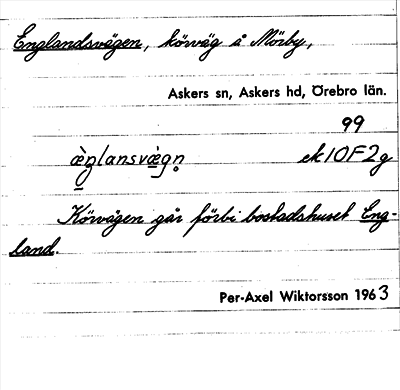 Englandsvägen, körväg å Mörby,
Askers sn, Askers hd, Örebro län.
99
æ̀ŋlansvæ̀gn̥ ek 10F2g
Körvägen går förbi bostadshuset Eng-
land.
Per-Axel Wiktorsson 1963